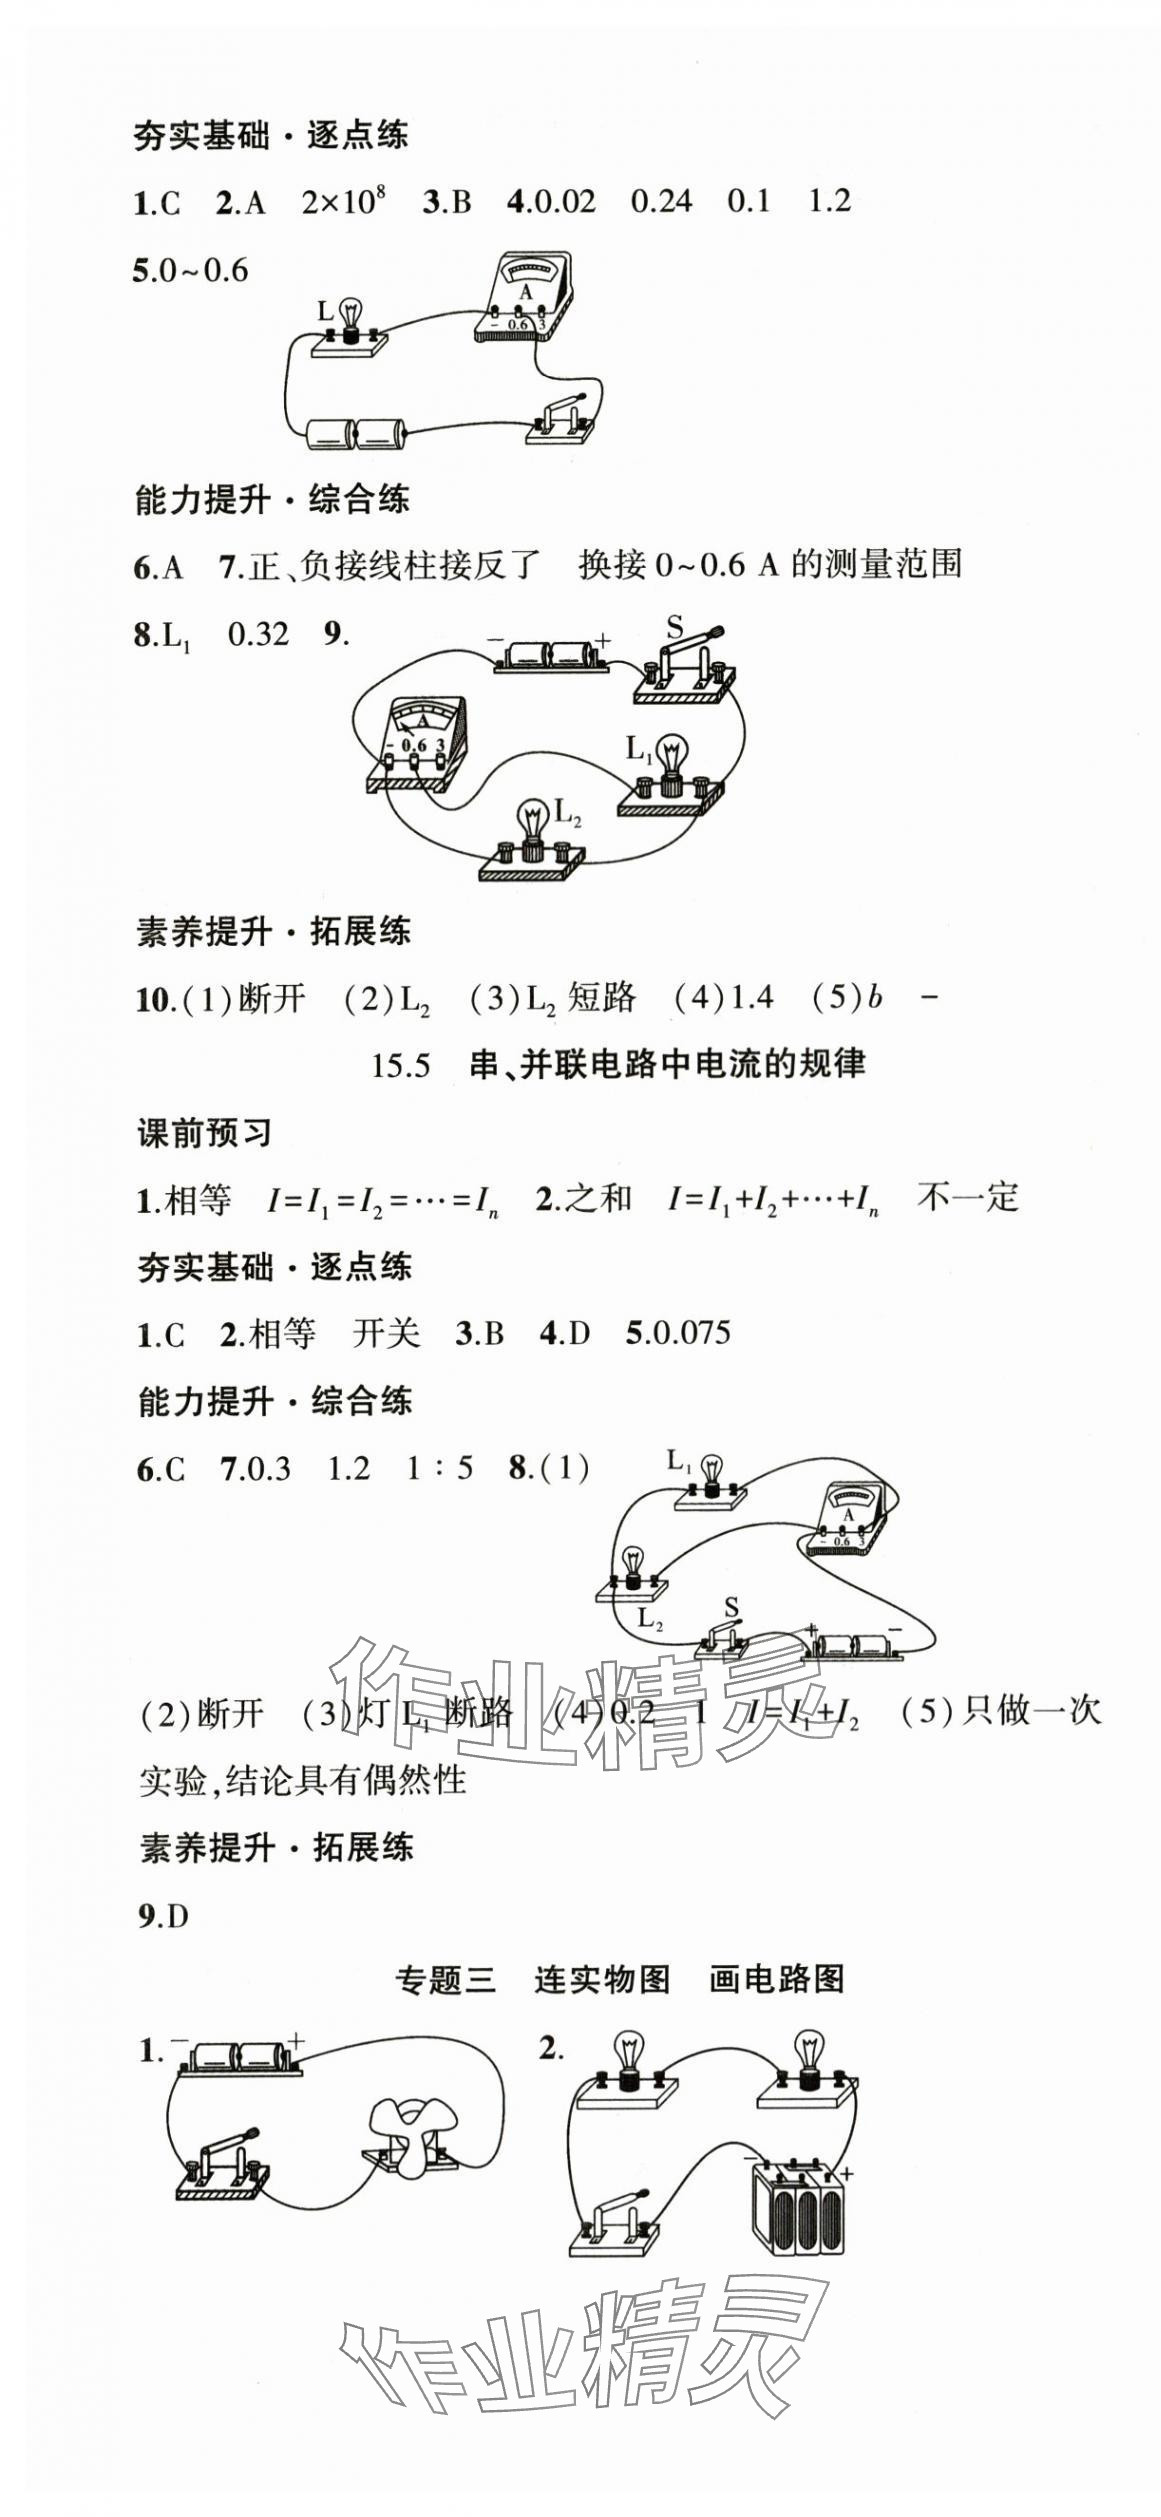 夯实基础·逐点练
1.C 2.A 2×10⁸ 3.B 4.0.02 0.24 0.1 1.2
5.0~0.6
L
A
- 0.6 3
能力提升·综合练
6.A 7.正、负接线柱接反了 换接 0~0.6 A 的测量范围
8.L₁ 0.32 9.
- + S
A
- 0.6 3
L₁
L₂
素养提升·拓展练
10.(1)断开 (2)L₂ (3)L₂ 短路 (4)1.4 (5)b -
15.5 串、并联电路中电流的规律
课前预习
1.相等 I=I₁=I₂=…=Iₙ 2.之和 I=I₁+I₂+…+Iₙ 不一定
夯实基础·逐点练
1.C 2.相等 开关 3.B 4.D 5.0.075
能力提升·综合练
6.C 7.0.3 1.2 1∶5 8.(1)
L₁
A
- 0.6 3
L₂ S
+ -
(2)断开 (3)灯 L₁ 断路 (4)0.2 1 I=I₁+I₂ (5)只做一次
实验,结论具有偶然性
作业精灵
素养提升·拓展练
9.D
专题三 连实物图 画电路图
1. - + 2.
- +
作业精灵